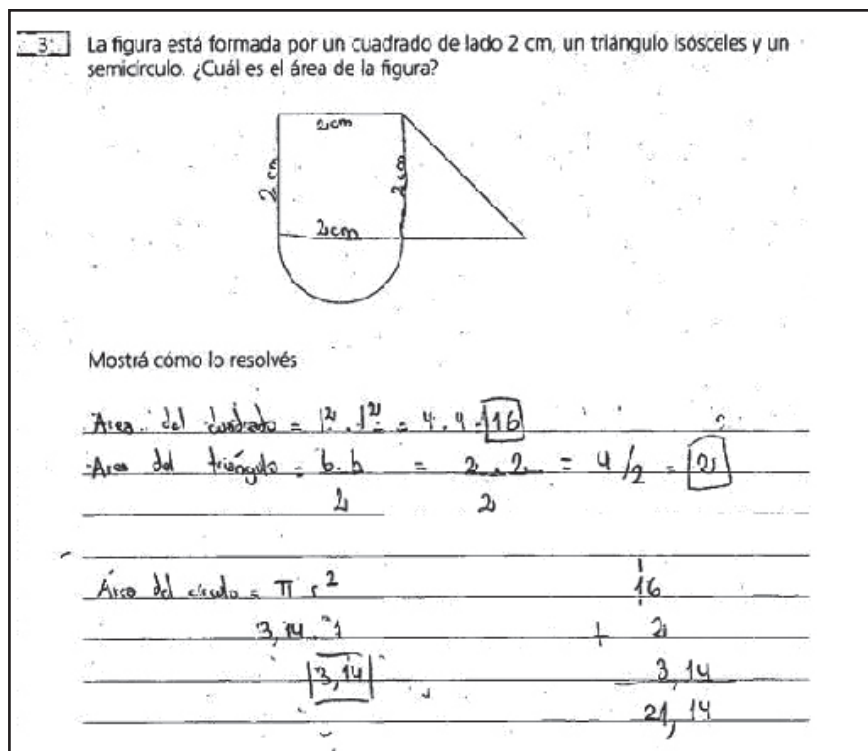 3. La figura está formada por un cuadrado de lado 2 cm, un triángulo isósceles y un
semicírculo. ¿Cuál es el área de la figura?
2cm
2 cm
2 cm
2cm
Mostrá cómo lo resolvés
Area del cuadrado = l² . l² = 4 . 4 = 16
Area del triángulo = b.h = 2 . 2 = 4/2 = 2
2 2
Área del círculo = π r² 16
3,14 . 1 + 2
3,14 3,14
21,14